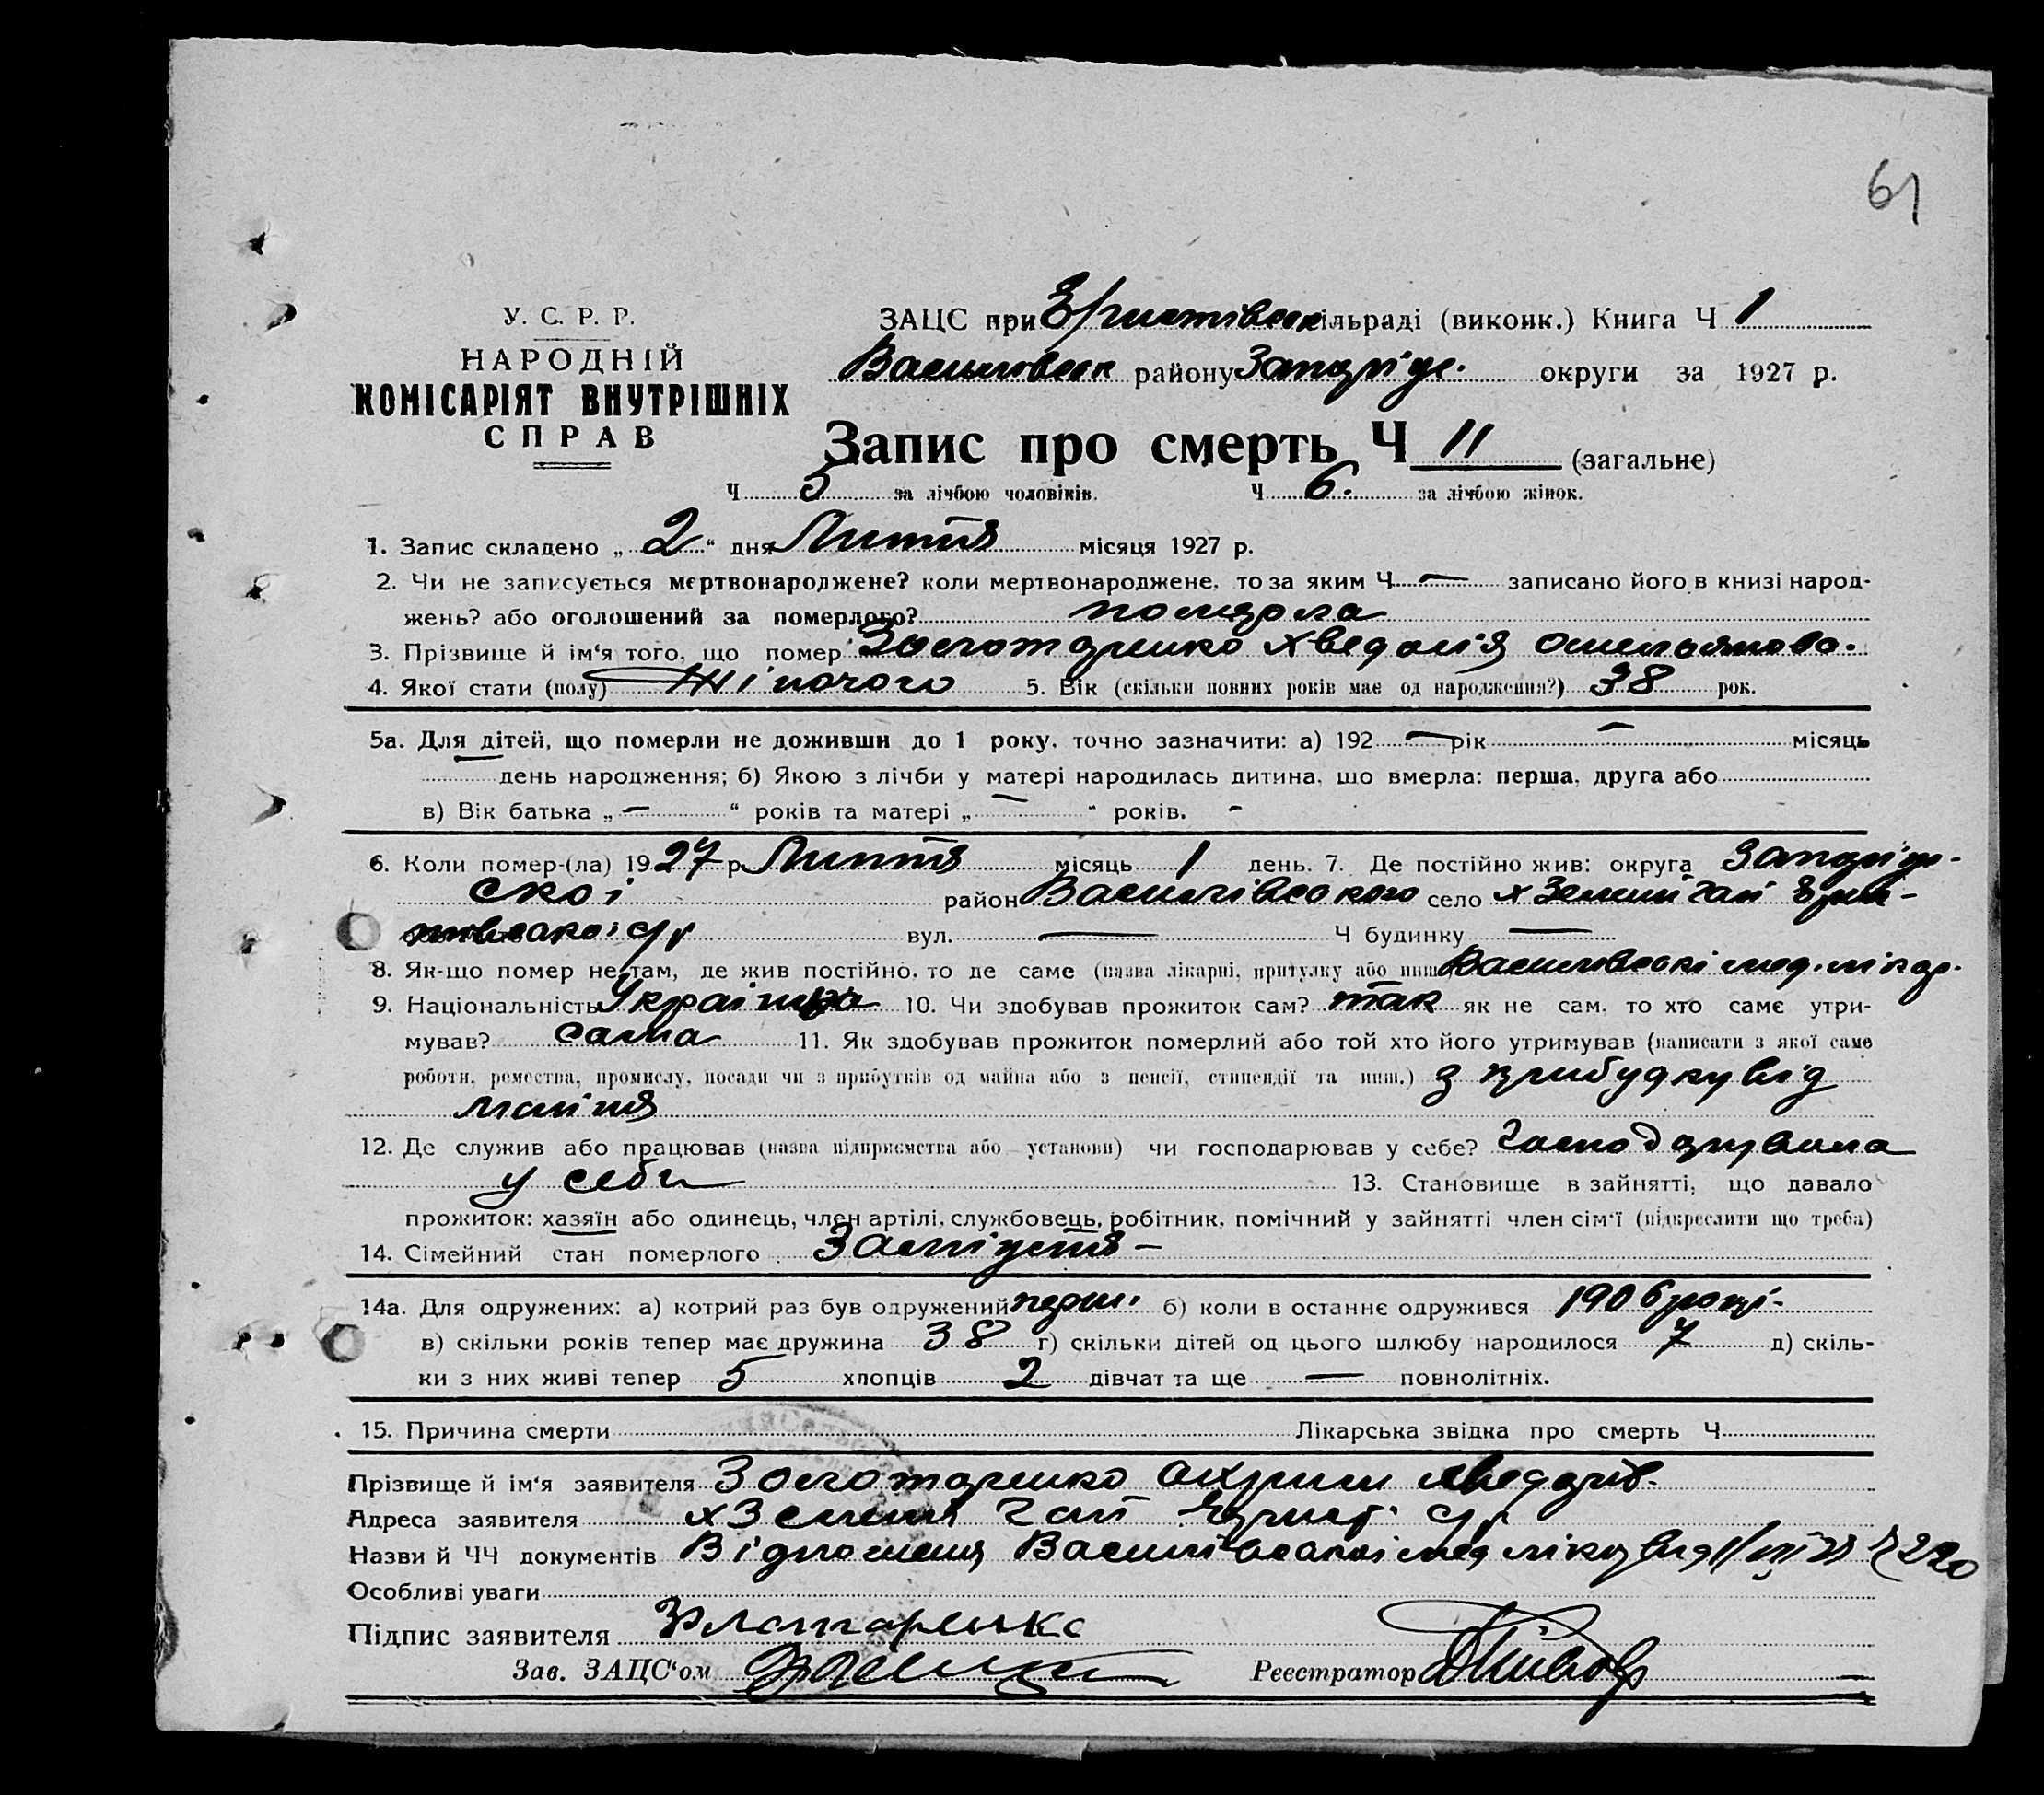 61
У. С. Р. Р.
НАРОДНІЙ
КОМІСАРІЯТ ВНУТРІШНІХ
СПРАВ
ЗАЦС при Єристівск сільраді (виконк.) Книга Ч 1
Василівськ району Запоріж. округи за 1927 р.
Запис про смерть Ч 11 (загальне)
Ч 5 за лічбою чоловіків. Ч 6. за лічбою жінок.
1. Запис складено „ 2 “ дня Лютня місяця 1927 р.
2. Чи не записується мертвонароджене? коли мертвонароджене, то за яким Ч — записано його в книзі народ-
жень? або оголошений за померлого? померла
3. Прізвище й ім‘я того, що помер Золотаренко Хведосія Омельянова.
4. Якої стати (полу) Жіночого 5. Вік (скільки повних років має од народження?) 38 рок.
5а. Для дітей, що померли не доживши до 1 року, точно зазначити: а) 192 — рік — місяць
день народження; б) Якою з лічби у матері народилась дитина, що вмерла: перша, друга або
в) Вік батька „ — “ років та матері „ — “ років. -
6. Коли помер-(ла) 1927 р Лютня місяць 1 день. 7. Де постійно жив: округа Запоріж-
скої район Василівского село х Зелений Гай Ерис-
тивскої с/р вул. — Ч будинку —
8. Як-що помер не там, де жив постійно, то де саме (назва лікарні, притулку або инш Василівскі мед. лікар.
9. Національність Українка 10. Чи здобував прожиток сам? так як не сам, то хто саме утри-
мував? сама 11. Як здобував прожиток померлий або той хто його утримував (написати з якої саме
роботи, ремества, промислу, посади чи з прибутків од майна або з пенсії, стипендії та инш.) з прибудку від
маіння
12. Де служив або працював (назва підприємства або установи) чи господарював у себе? Господарувала
у себе 13. Становище в зайнятті, що давало
прожиток: хазяїн або одинець, член артілі, службовець, робітник, помічний у зайнятті член сім‘ї (підкреслити що треба)
14. Сімейний стан померлого Заміжня —
14а. Для одружених: а) котрий раз був одружений перш. б) коли в останнє одружився 1906 році.
в) скільки років тепер має дружина 38 г) скільки дітей од цього шлюбу народилося 7 д) скіль-
ки з них живі тепер 5 хлопців 2 дівчат та ще — повнолітніх.
15. Причина смерти Лікарська звідка про смерть Ч
Прізвище й ім‘я заявителя Золотаренко Охрим
Адреса заявителя х Зелений Гай с/р
Назви й ЧЧ документів Відношення Василівської мед лікар від
Особливі уваги
Підпис заявителя Золотаренко
Зав. ЗАЦС‘ом
Реєстратор